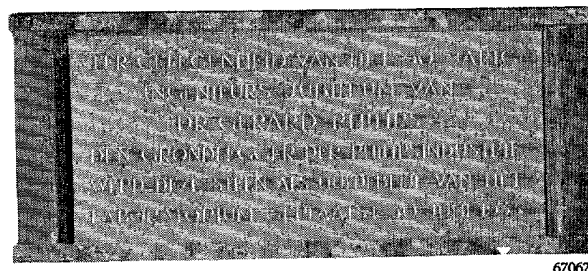 TER GELEGENHEID VAN HET 50 JARIG
INGENIEURS JUBILEUM VAN
DR GERARD PHILIPS
DEN GRONDLEGGER DER PHILIPS INDUSTRIE
WERD DEZE STEEN ALS VAN HET
LABORATORIUM GEPLAATST
67067